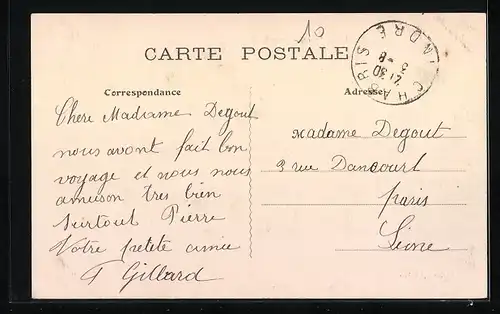 10
CARTE POSTALE
CHABRIS INDRE
21 30
3 - 8
Correspondance
Adresse
Chere Madame Degout
nous avont fait bon
voyage et nous nous
amuson tres bien
surtout Pierre
Votre petete amie
F Gillard
Madame Degout
9 rue Dancourt
paris
Seine